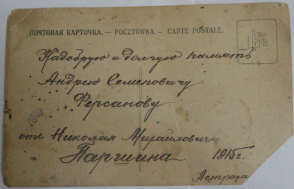 ПОЧТОВАЯ КАРТОЧКА. — POCZTÓWKA. — CARTE POSTALE.
На добрую и долгую память
Андрею Семеновичу
Ферсанову
отъ Николая Михайловича
Паршина 1915 г.